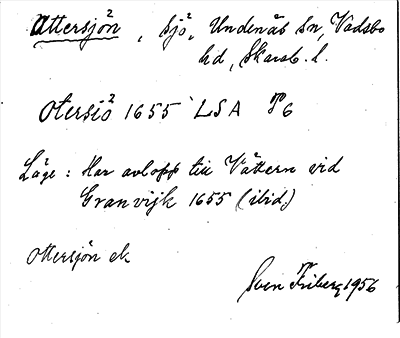 Uttersjön, sjö, Undenäs sn, Vadsbo
hd, Skarab. l.
Otersiö 1655 LSA P6
Läge: Har avlopp till Vättern vid
Granvijk 1655 (ibid.)
Ottersjön ek
Sven Friberg 1956